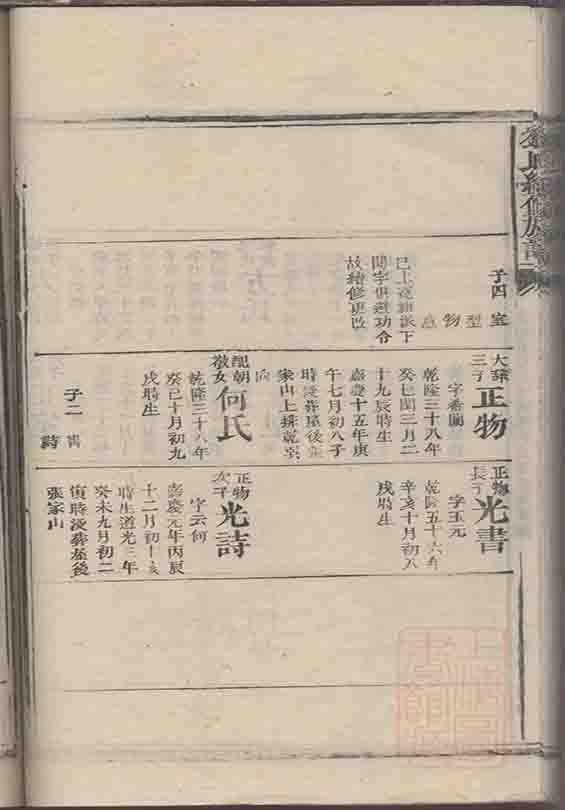 氏續修族譜
子四
型
物
已上
下
間字俱避功令
故續修更改
大
三子
正物
字希聞
乾隆三十八年
癸巳閏三月二
十九辰時生
嘉慶十五年庚
午七月初八子
時歿葬屋後張
家山上排乾巽
向
配朝
敬女
何氏
乾隆三十八年
癸巳十月初九
戌時生
子二
書
詩
正物
長子
光書
字玉元
乾隆五十六年
辛亥十月初八
戌時生
正物
次子
光詩
字云何
嘉慶元年丙辰
十二月初十亥
時生道光三年
癸未九月初二
寅時歿葬屋後
張家山